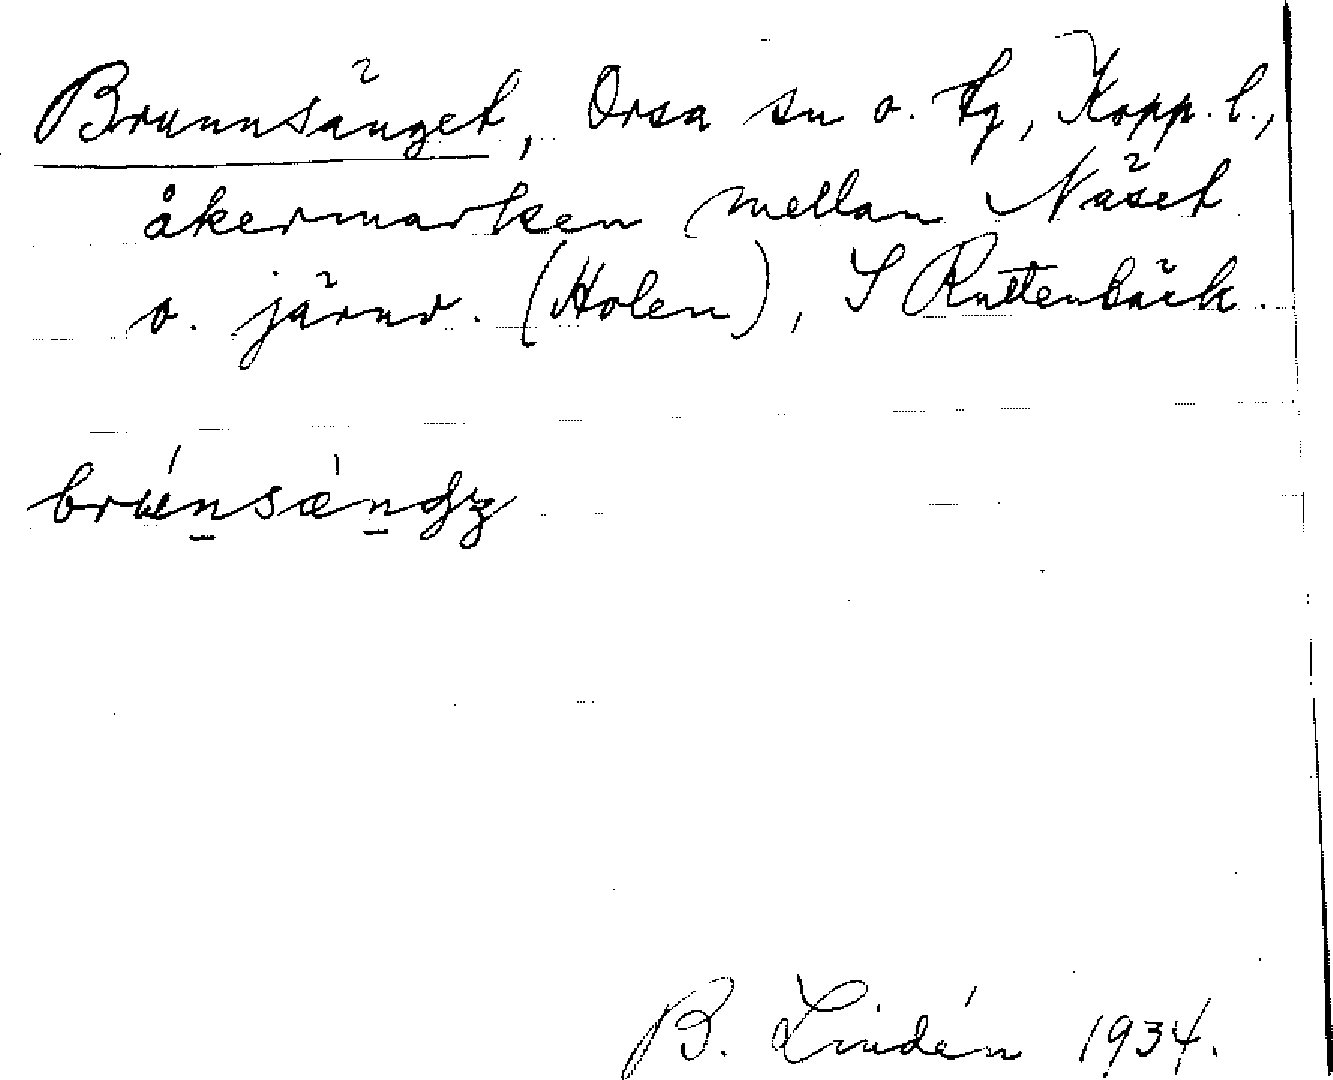 Brunnsänget, Orsa sn o. tg, Kopp. l.,
åkermarken mellan Näset
o. järnv. (Holen), S Ruttenbäck.
B. Lindén 1934.